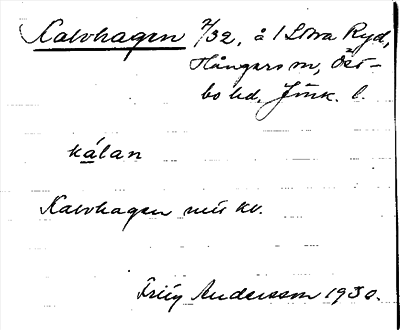 Kalvhagen 7/32, å 1 Stora Ryd,
Hångers sn, Öst-
bo hd, Jönk. l.
kálan
Kalvhagen mis kv.
Frity Andersson 1930.